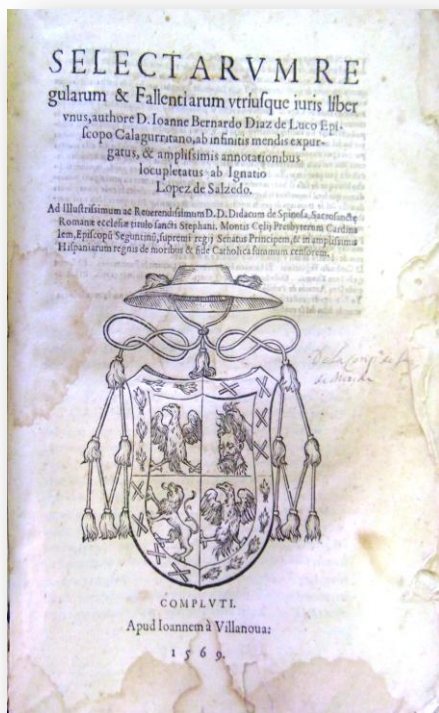 SELECTARVM RE
gularum & Fallentiarum vtriuſque iuris liber
vnus, authore D. Ioanne Bernardo Diaz de Luco Epi-
ſcopo Calagurritano, ab infinitis mendis expur-
gatus, & ampliſsimis annotationibus
locupletatus ab Ignatio
Lopez de Salzedo.
Ad Illuſtriſsimum ac Reuerendiſsimum D.D. Didacum de Spinoſa, Sacroſanctę
Romanæ eccleſiæ titulo ſancti Stephani. Montis Celij Presbyterum Cardina
lem, Epiſcopū Seguntinū, ſupremi regij Senatus Principem, & in ampliſsimis
Hiſpaniarum regnis de moribus & fide Catholica ſummum cenſorem.
de la
COMPLVTI.
Apud Ioannem à Villanoua:
1569.